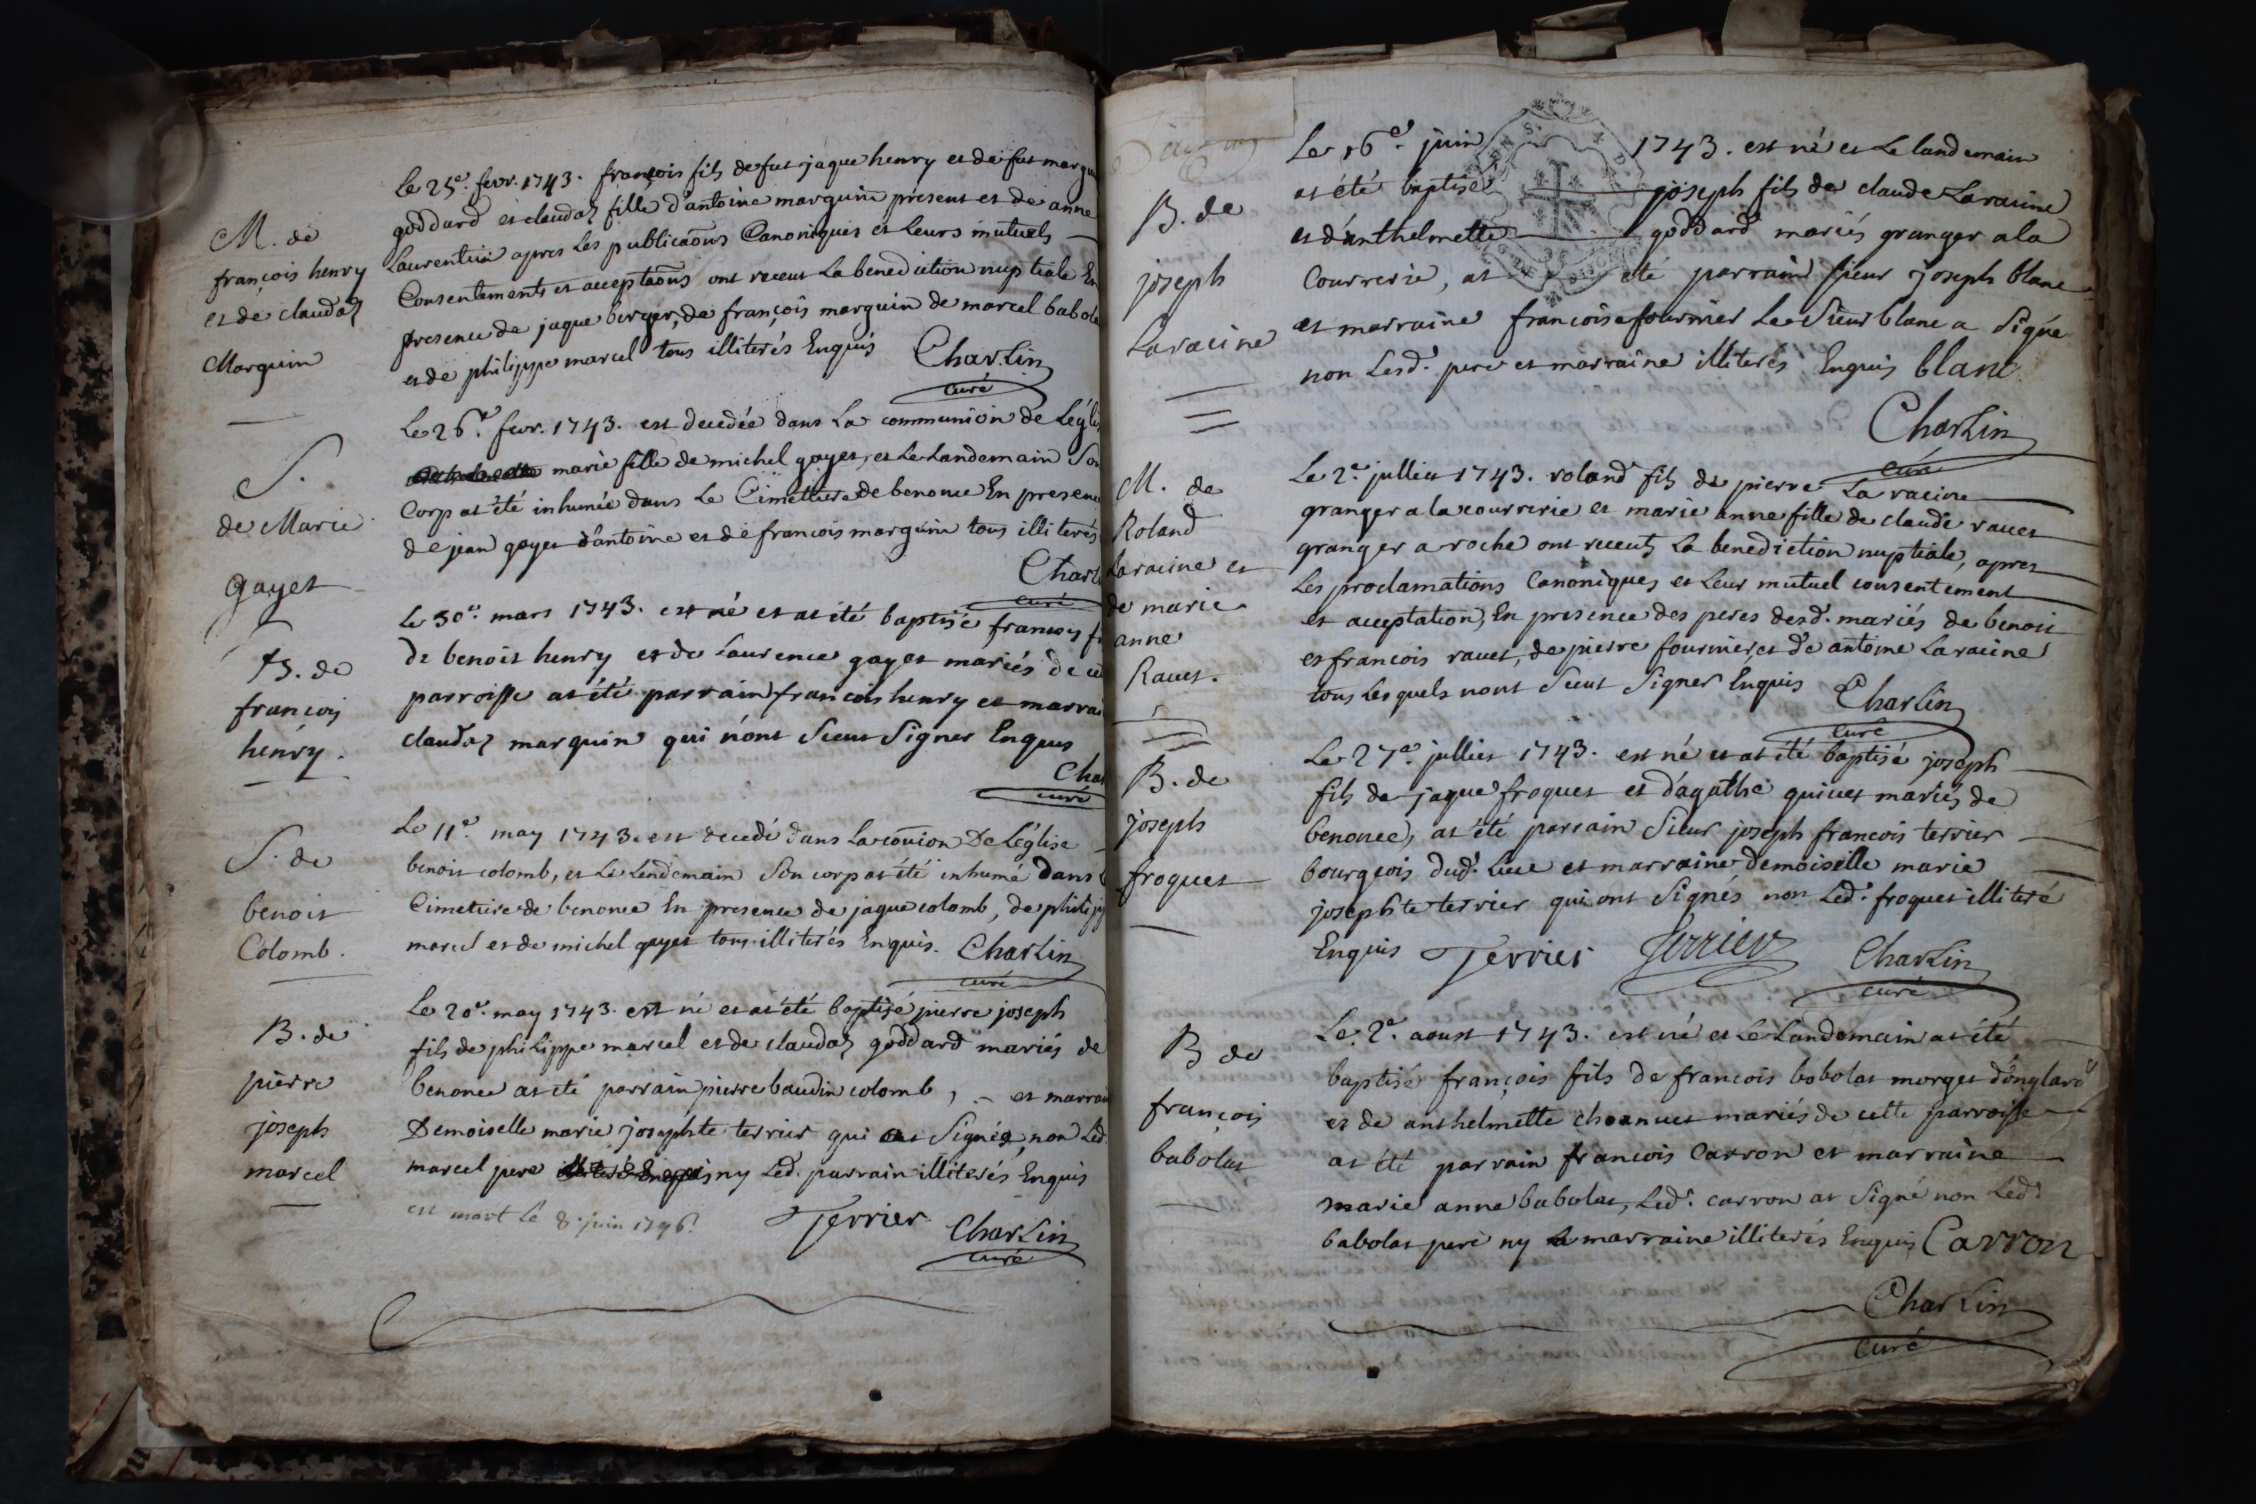 M. de
françois henry
et de claudaz
Marguin
Le 25e. fevr. 1743. françois fils de fut jaque henry et de fut margue
goddard et claudaz fille d'antoine marguin présent et de anne
Laurentin apres les publicaõns Canoniques et Leurs mutuels
Consentements et acceptaõns ont receut La benediction nuptiale En
presence de jaque berger, de françois marguin de marcel babola
et de philippe marcel tous illiterés Enquis Charlin
curé
S.
de Marie
gayet
Le 26e. fevr. 1743. est decedée dans La communion de L'égli
marie fille de michel gayet, et Le Landemain Son
Corp at été inhumée dans Le Cimettiere de benonce En presence
de jean gayet d'antoine et de francois marguin tous illiterés
Charl
curé
B. de
francois
henry.
Le 30e. mars 1743. est né et at été baptisé francois fi
de benoit henry et de Laurence gayet mariés de ce
parroisse at été parrain francois henry et marrai
claudaz marguin qui n'ont Sceut Signer Enquis
Char
curé
S. de
benoit
Colomb.
Le 11e. may 1743. est decedé dans La coũion De L'église
benoit colomb, et Le Lendemain Son corp at été inhumé dans l
Cimetiere de benonce En presence de jaque colomb, de philipp
marcel et de michel gayet tous illiterés Enquis. Charlin
curé
B. de
pierre
joseph
marcel
Le 20e. may 1743. est né et at été baptisé pierre joseph
fils de philippe marcel et de claudaz goddard mariés de
benonce at été parrain pierre baudin colomb, et marrai
Demoiselle marie josephte terrier qui at Signée, non Led.
marcel pere ny Led. parrain illiterés Enquis
est mort Le 8. juin 1746. Terrier Charlin
curé
B. de
joseph
Laracine
Le 16e. juin 1743. est né et Le landemain
at été baptisé joseph fils de claude Laracine
et d'anthelmette goddard mariés granger a la
Courrerie, at été parrain sieur joseph blanc
et marraine francoise fournier Le Sieur blanc a Signé
non Lesd. pere et marraine illiterés Enquis blanc
Charlin
curé
M. de
Roland
Laracine et
de marie
anne
Ravet.
Le 2e. jullet 1743. roland fils de pierre La racine
granger a la courrerie et marie anne fille de claude ravet
granger a roche ont receut La benediction nuptiale, apres
Les proclamations Canoniques et Leur mutuel consentement
et acceptation, En presence des peres desd. mariés de benoit
et francois ravet, de pierre fournier, et de antoine Laracine
tous Lesquels nont Sceut Signer Enquis Charlin
curé
B. de
joseph
froquet
Le 27e. jullet 1743. est né et at été baptisé joseph
fils de jaque froquet et d'agathe quinet mariés de
benonce, at été parrain Sieur joseph francois terrier
bourgeois dud. Lieu et marraine demoiselle marie
josephte terrier qui ont Signés non Led. froquet illiteré
Enquis Terrier Terrier Charlin
curé
B de
françois
babolat
Le. 2e. aoust 1743. est né et Le Landemain at été
baptisé françois fils de francois babolat morget d'onglard
et de anthelmette choanuet mariés de cette parroisse
at été parrain francois Carron et marraine
marie anne babolat, Led. carron at Signé non Led.
babolat pere ny La marraine illiterés Enquis Carron
Charlin
curé